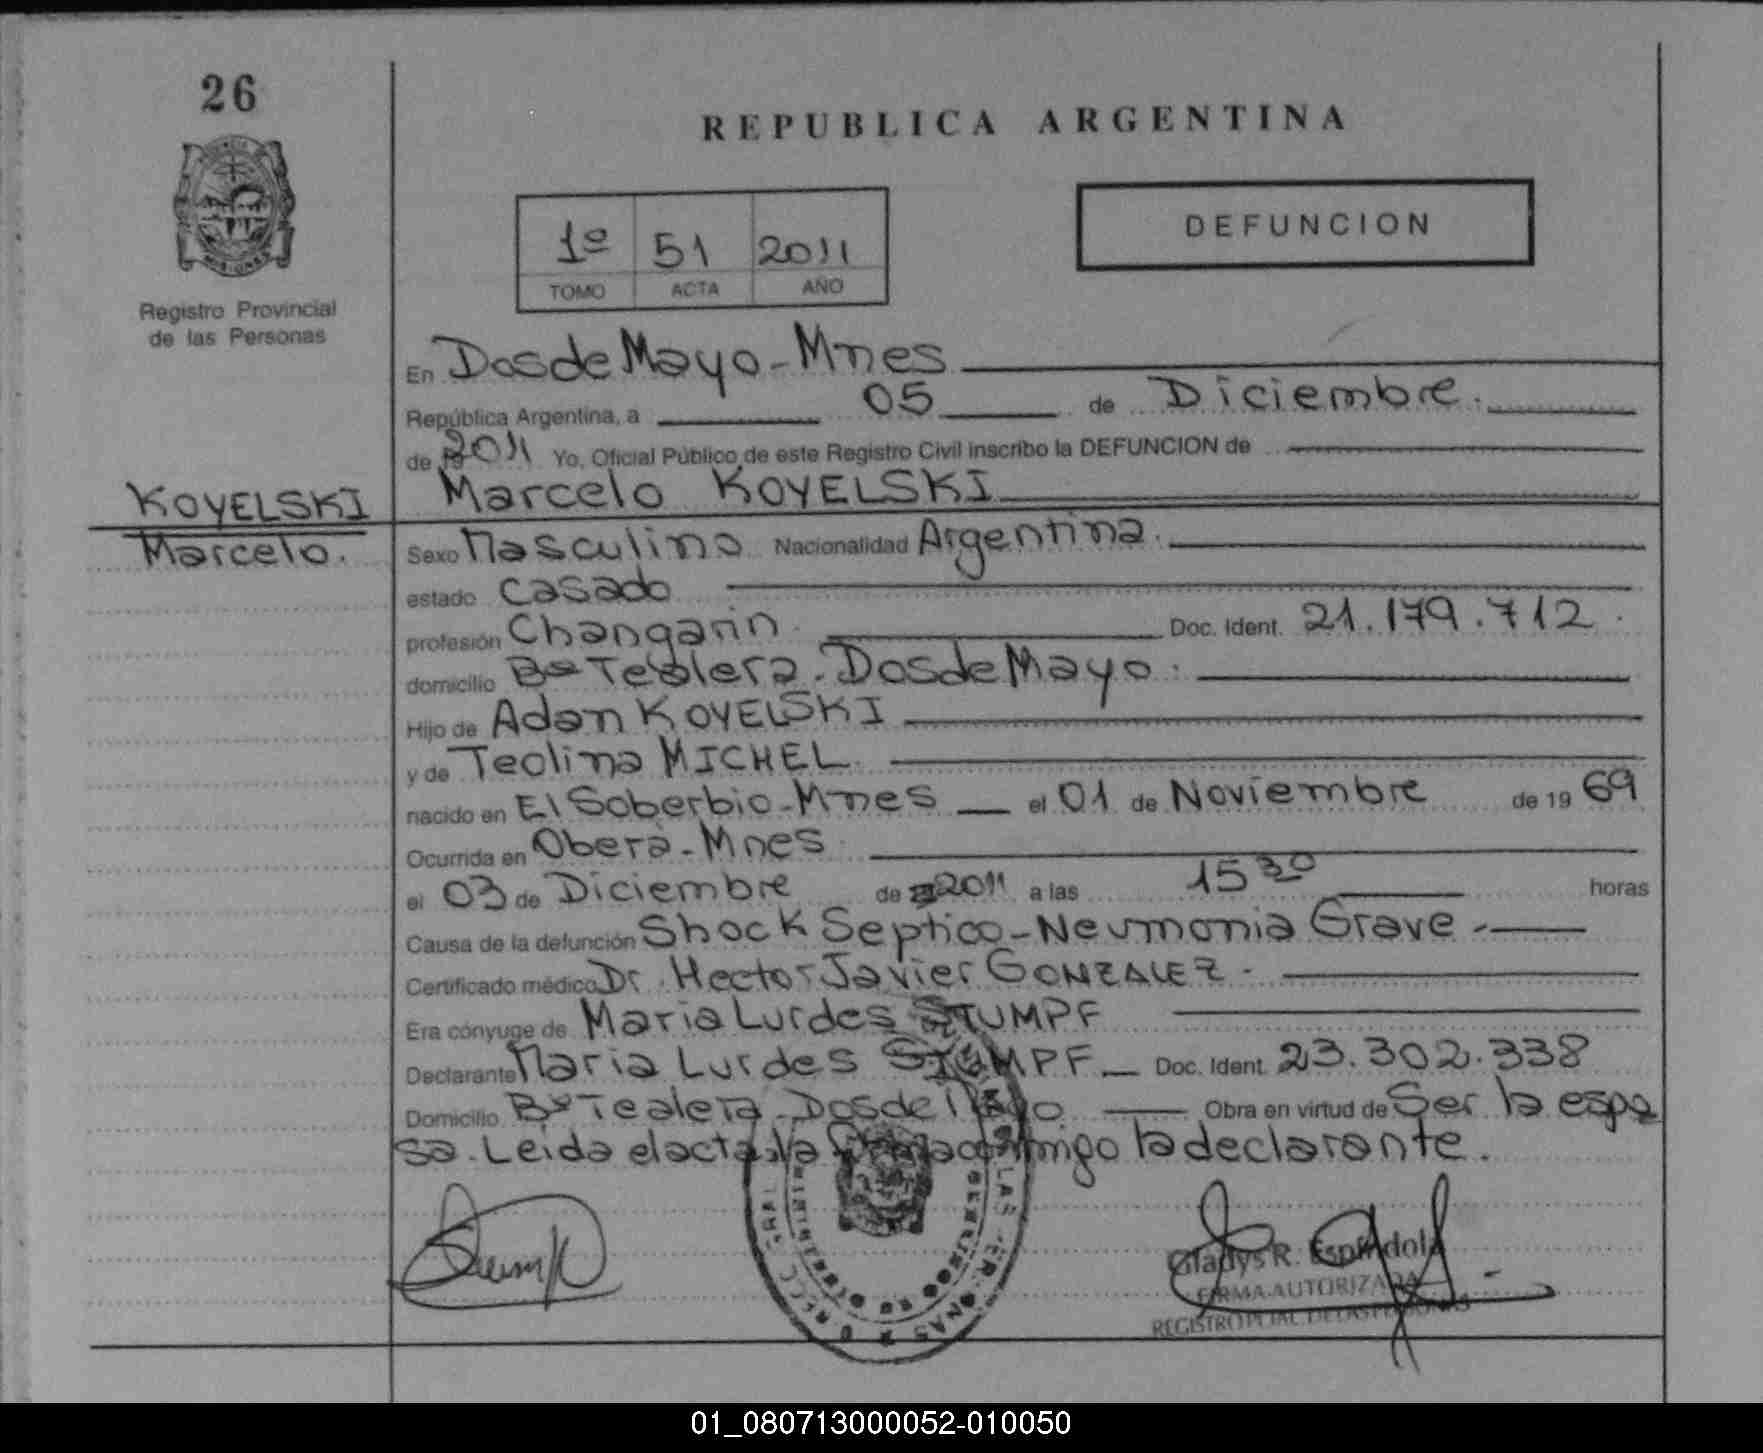 26
REPUBLICA ARGENTINA
DEFUNCION
1º 51 2011
TOMO ACTA AÑO
Registro Provincial
de las Personas
En Dos de Mayo - Mnes
República Argentina, a 05 de Diciembre.
de 2011 Yo, Oficial Público de este Registro Civil inscribo la DEFUNCION de
KOYELSKI Marcelo KOYELSKI
Marcelo.
Sexo Masculino Nacionalidad Argentina.
estado Casado
profesión Changarin Doc. Ident. 21.179.712.
domicilio Bº Tealera. Dos de Mayo.
Hijo de Adan KOYELSKI
y de Teolina MICHEL.
nacido en El Soberbio - Mnes el 01 de Noviembre de 19 69
Ocurrida en Oberà - Mnes
el 03 de Diciembre de 2011 a las 15 30 horas
Causa de la defunción Shock Septico - Neumonia Grave -
Certificado médico Dr. Hector Javier GONZALEZ -
Era cónyuge de Maria Lurdes STUMPF
Declarante Maria Lurdes STUMPF Doc. Ident. 23.302.338
Domicilio Bº Tealera - Dos de Mayo Obra en virtud de Ser la espo
sa. Leida el acta la firma conmigo la declarante.
Gladys R. Espindola
FIRMA AUTORIZADA
REGISTRO PCIAL. DE LAS PERSONAS
01_080713000052-010050